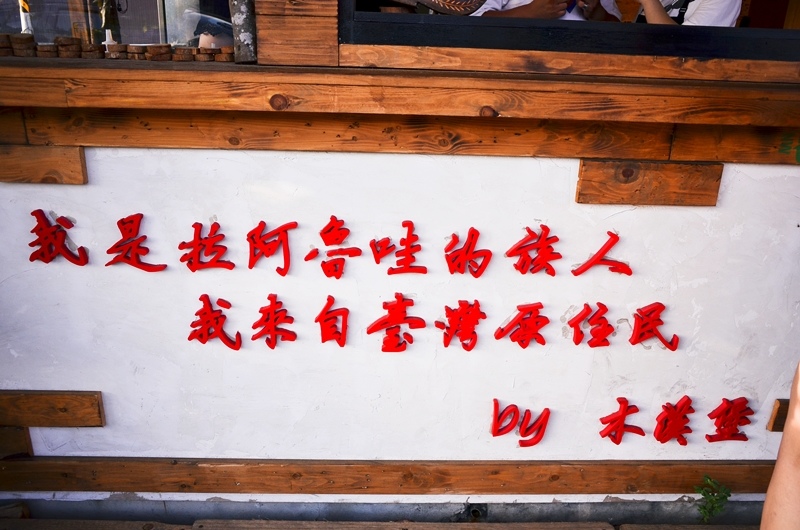 我是拉阿魯哇的族人
我來自臺灣原住民
by 木漢堡